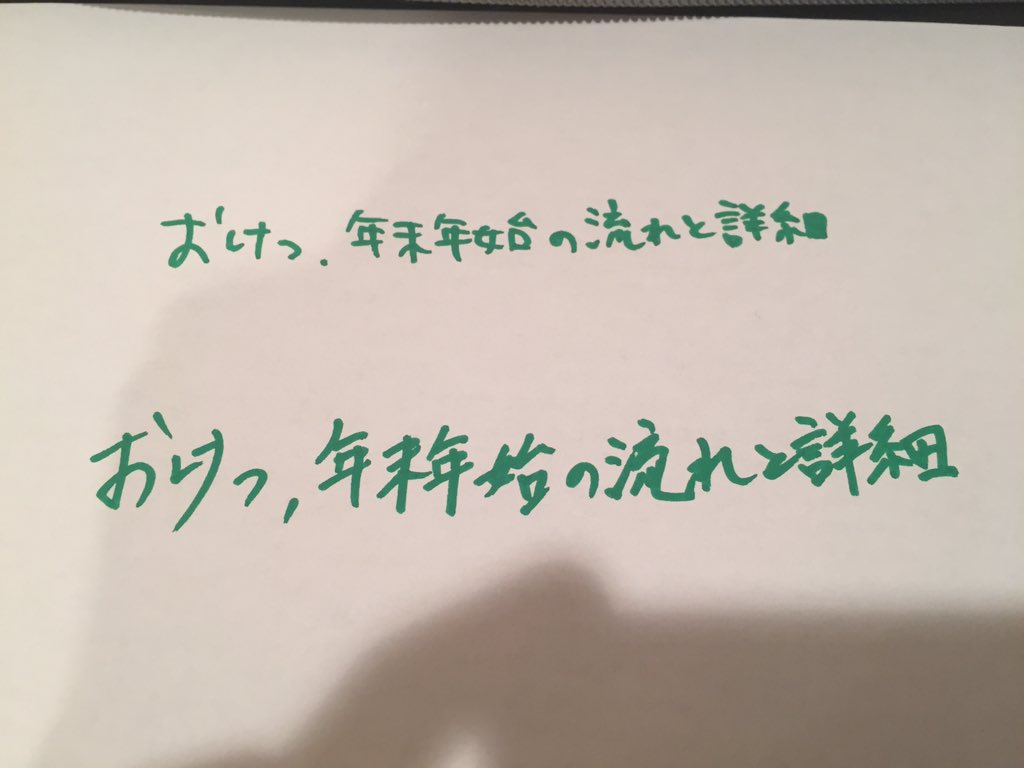 おけつ.年末年始の流れと詳細
おけつ,年末年始の流れと詳細